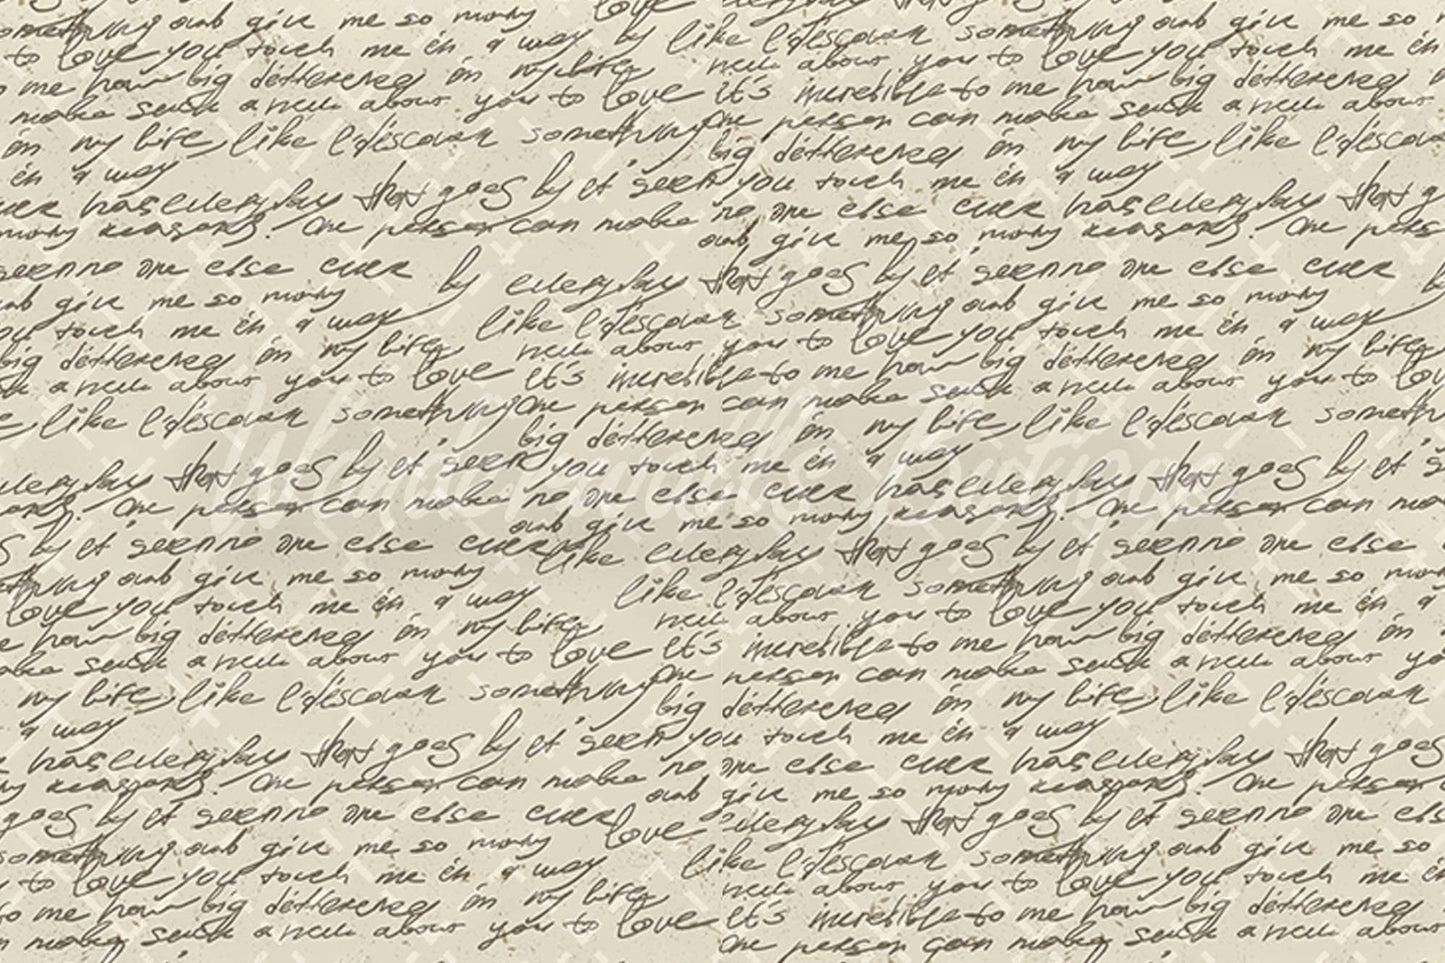 love everyday that goes
something and give me so many by like I discover something and give me so
to love you touch me in a way new about you to love you touch me in
me how big difference in my life it's incredible to me how big difference
make such a new about you to love One person can make such a new about
in my life, like I discover something big difference in my life, like I discover
in a way you touch me in a way
ever has everyday that goes by it seem no one else ever has everyday that
many reasons. One person can make and give me so many reasons. One
seem no one else ever by everyday that goes by it seem no one else ever
and give me so many like I discover something and give me so many
you touch me in a way new about you to love you touch me in a way
big difference in my life it's incredible to me how big difference in my life
a new about you to love One person can make such a new about you to
like I discover something big difference in my life, like I discover
everyday that goes by it seem you touch me in a way everyday that goes by it
One person can make no one else ever has reasons. One person can
and give me so many
by it seem no one else ever like everyday that goes by it seem no one else
and give me so many like I discover something and give me so
love you touch me in a way new about you to love you touch me in a
how big difference in my life it's incredible to me how big difference in
make such a new about you to love One person can make such a new about
my life, like I discover something big difference in my life, like I discover
a way you touch me in a way
has everyday that goes by it seem no one else ever has everyday that goes
reasons. One person can make and give me so many reasons. One
goes by it seem no one else ever love everyday that goes by it seem no one
something and give me so many like I discover something and give me so
to love you touch me in a way new about you to love you touch me
to me how big difference in my life it's incredible to me how big difference
make such a new about you to love One person can make such a new about